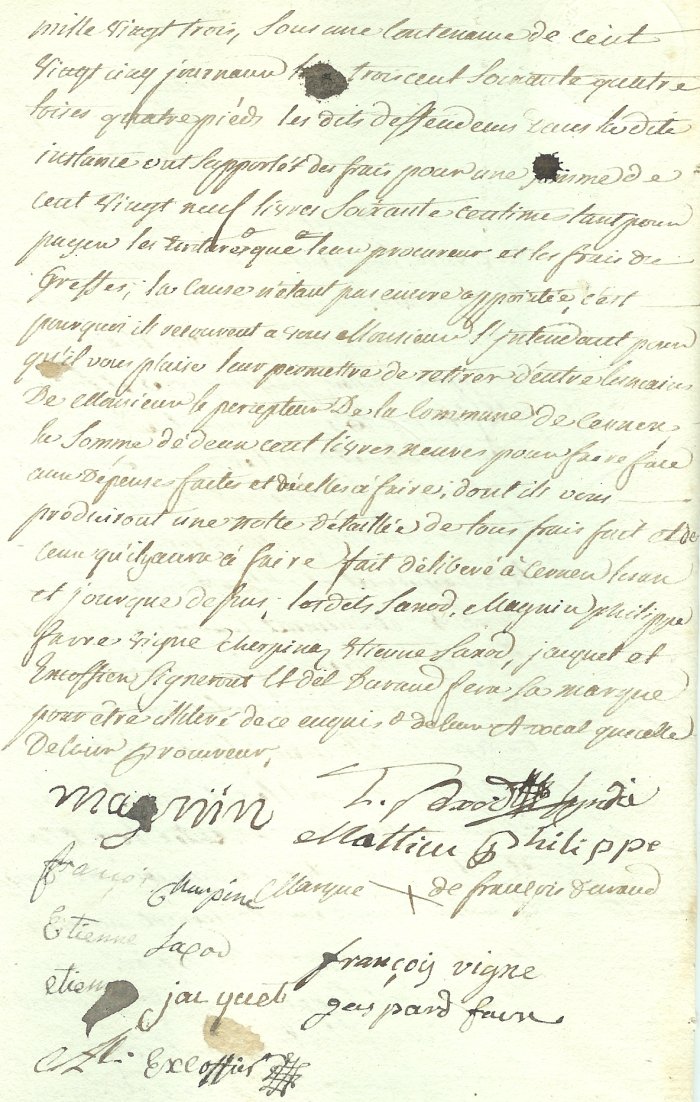 mille vingt trois, sous une contenance de cent
vingt cinq journaux trois cent soixante quatre
toises quatre pieds les dits deffendeurs dans la dite
instance ont supporté des frais pour une somme de
cent vingt neuf livres soixante centime tant pour
payer les que leur procureur et les frais de
Greffes, la cause n'étant pas encore appointée, c'est
pourquoi ils recourent a vous Monsieur l'jntendant pour
qu'il vous plaise leur permettre de retirer d'entre les mains
De Monsieur le percepteur De la Commune de Cernex
la somme de deux cent livres neuves pour faire face
aux Dépense faites et d'icelles à faire, dont ils vous
produiront une notte détaillée de tous frais fait et de
ceux qu'il y aura à faire, fait délibéré à Cernex l'an
et jour que dessus, lesdits Saxod, Magnin, philippe
favre vigne Cherpinaz Etienne Saxod, jacquet et
Excoffier Signeront et dit Duraud fera sa marque
pour être illiteré de ce enquis & de leur Avocat que celle
De leur procureur,
magniin
Saxod Syndic
Mathieu philippe
françois
Marque de françois Duraud
Etienne Saxod
françois vigne
etienne jacquet
gaspard favre
Excoffier